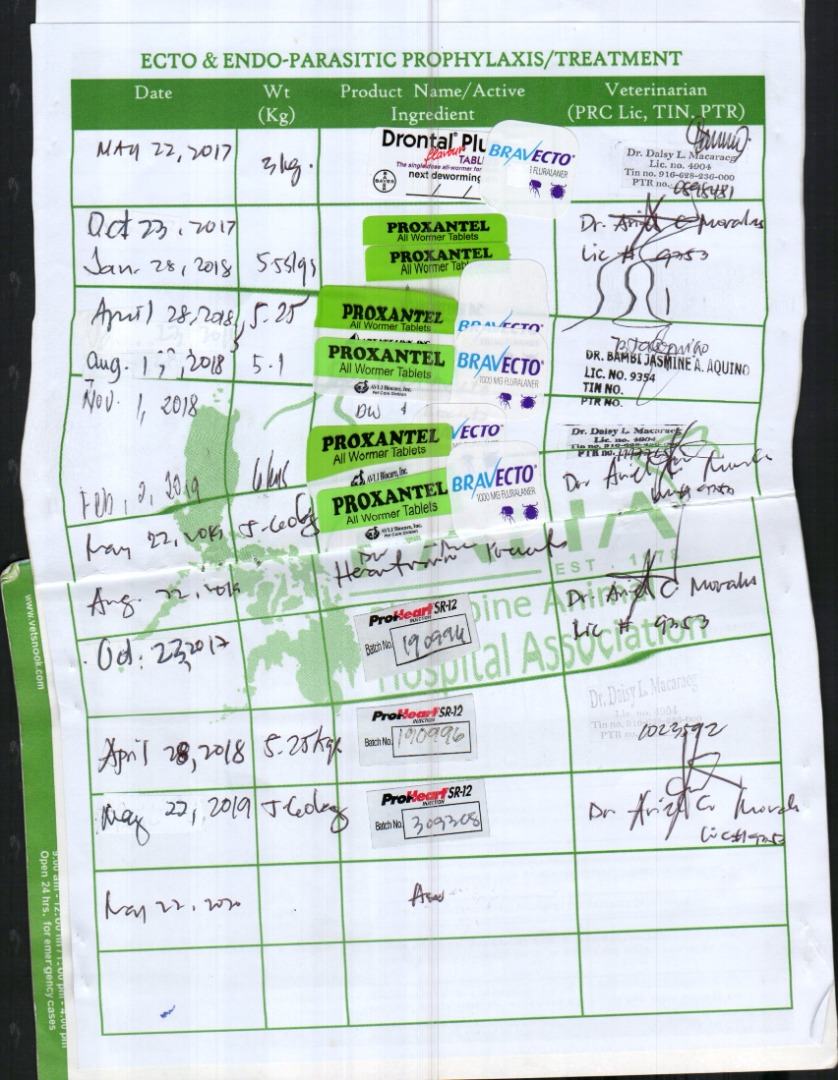 ECTO & ENDO-PARASITIC PROPHYLAXIS/TREATMENT
Date Wt (Kg) Product Name/Active Ingredient Veterinarian (PRC Lic, TIN, PTR)
MAY 22, 2017 3 kg.
Drontal Plu
flavour TABL
The single dose all-wormer for
next deworming
BAYER
BRAVECTO
FLURALANER
Dr. Daisy L. Macaraeg
Lic. no. 4904
Tin no. 916-628-236-000
PTR no.
Oct 23, 2017
PROXANTEL
All Wormer Tablets
Dr. Ariel C Morales
Lic # 9253
Jan. 28, 2018
PROXANTEL
All Wormer Tablets
April 28, 2018 5.25
PROXANTEL
All Wormer Tablets
BRAVECTO
Aug. 1, 2018 5.1
PROXANTEL
All Wormer Tablets
BRAVECTO
1000 MG FLURALANER
DR. BAMBI JASMINE A. AQUINO
LIC. NO. 9354
TIN NO.
PTR NO.
Nov. 1, 2018
DW &
PROXANTEL
All Wormer Tablets
VECTO
Dr. Daisy L. Macaraeg
Lic. no. 4904
Feb. 2, 2019
PROXANTEL
All Wormer Tablets
BRAVECTO
1000 MG FLURALANER
Dr. Ariel C Morales
May 22, 2019
EST. 1978
Aug. 22, 2019
Dr. Ariel C Morales
Lic # 9253
pine Animal
Hospital Association
Oct. 23, 2017
ProHeart SR-12
INJECTION
Batch No. 190996
April 28, 2018 5.25kg
ProHeart SR-12
INJECTION
Batch No. 190996
Dr. Daisy L. Macaraeg
Lic. no. 4904
2023592
May 22, 2019
ProHeart SR-12
INJECTION
Batch No. 309308
Dr. Ariel C Morales
Lic # 9253
May 22, 2020
www.vetsnook.com
Open 24 hrs. for emergency cases